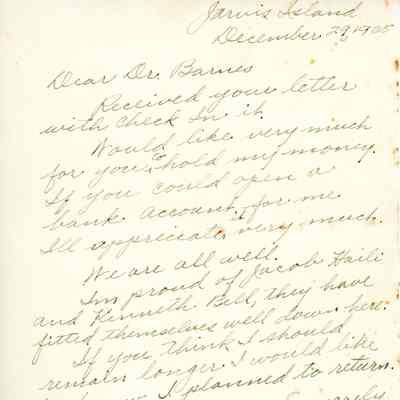 Jarvis Island
December 29, 1935
Dear Dr. Barnes
Received your letter
with check in it.
Would like very much
for you to hold my money.
If you could open a
bank account for me
Ill appreciate it very much.
We are all well.
Im proud of Jacob Haili
and Kenneth Bell, they have
fitted themselves well down here.
If you think I should
remain longer I would like
I planned to return.